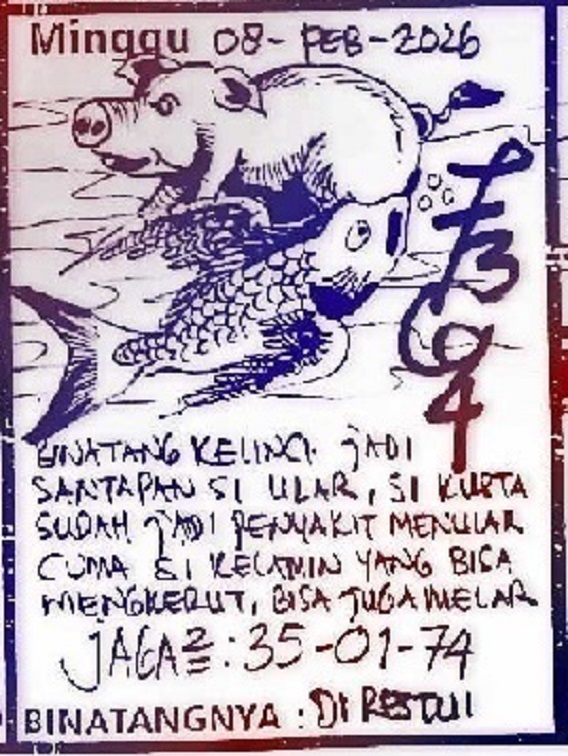 Minggu 08- PEB-2026
7364
BINATANG KELINCI JADI
SANTAPAN SI ULAR, SI KUSTA
SUDAH JADI PENYAKIT MENULAR
CUMA SI KELAMIN YANG BISA
MENGKERUT, BISA JUGA MELAR
JAGA2: 35-01-74
BINATANGNYA : DI RESTUI